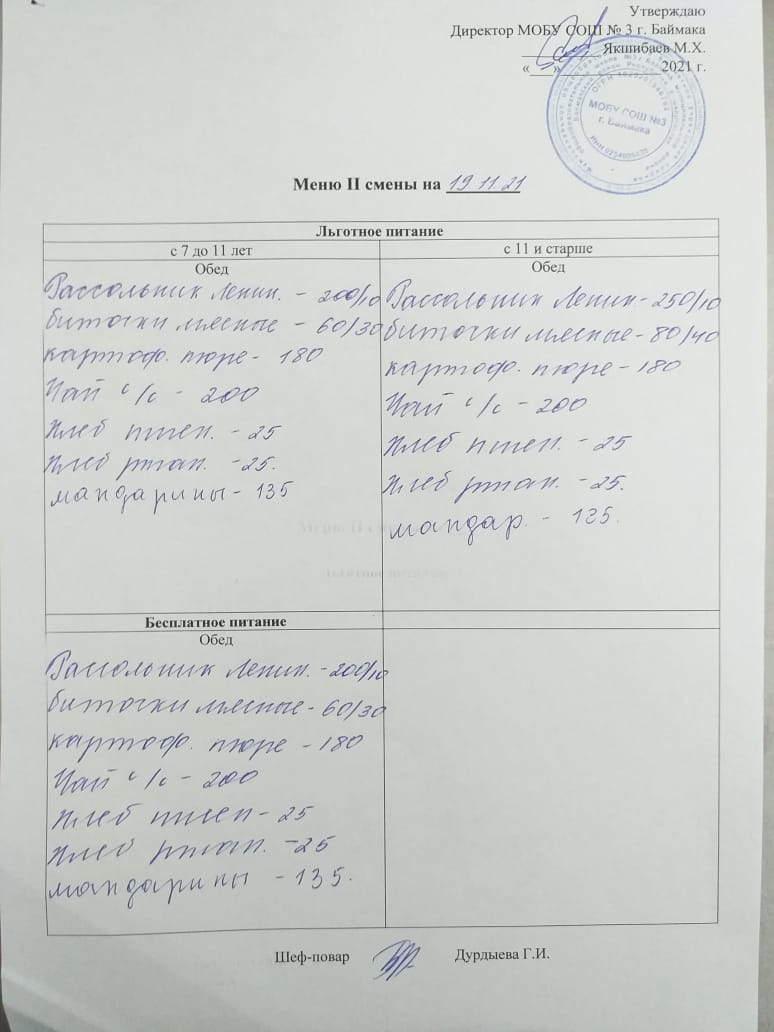 Утверждаю
Директор МОБУ СОШ № 3 г. Баймака
Якшибаев М.Х.
«___»__________2021 г.
МОБУ СОШ №3
г. Баймака
Меню II смены на 19.11.21
Льготное питание
с 7 до 11 лет
Обед
Рассольник Ленин. - 200/10
биточки мясные - 60/30
картоф. пюре - 180
Чай с/с - 200
Хлеб пшен. - 25
Хлеб ржан. - 25.
мандарины - 135
с 11 и старше
Обед
Рассольник Ленин - 250/10
биточки мясные - 80/40
картоф. пюре - 180
Чай с/с - 200
Хлеб пшен. - 25
Хлеб ржан. - 25.
мандар. - 135.
Бесплатное питание
Обед
Рассольник Ленин. - 200/10
биточки мясные - 60/30
картоф. пюре - 180
Чай с/с - 200
Хлеб пшен - 25
Хлеб ржан. - 25
мандарины - 135.
Шеф-повар Дурдыева Г.И.